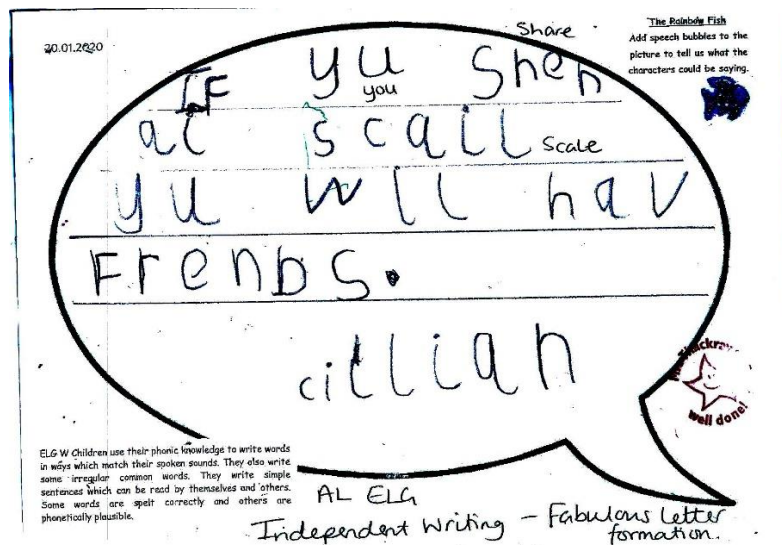 20.01.2020
The Rainbow Fish
Add speech bubbles to the
picture to tell us what the
characters could be saying.
Share
IF yu Sheh
you
ai scaill Scale
yu wll hav
Frends.
cillian
well done!
ELG W Children use their phonic knowledge to write words
in ways which match their spoken sounds. They also write
some irregular common words. They write simple
sentences which can be read by themselves and others.
Some words are spelt correctly and others are
phonetically plausible.
AL ELG
Independent Writing – Fabulous letter
formation.